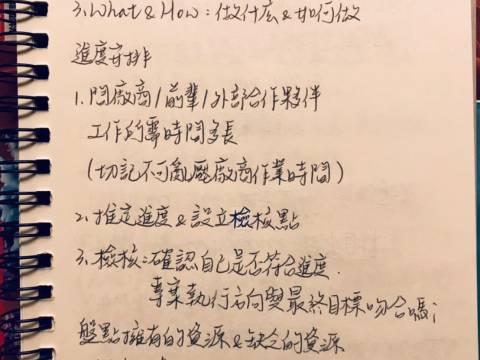 3. What & How：做什広 & 如何做
進度安排
1. 問廠商/前輩/外部合作夥伴
工作所需時間多長
(切記不可亂壓廠商作業時間)
2. 推定進度 & 設立檢核點
3. 檢核：確認自己是否符合進度.
專案執行方向與最終目標吻合嗎;
盤點擁有的資源 & 缺乏的資源